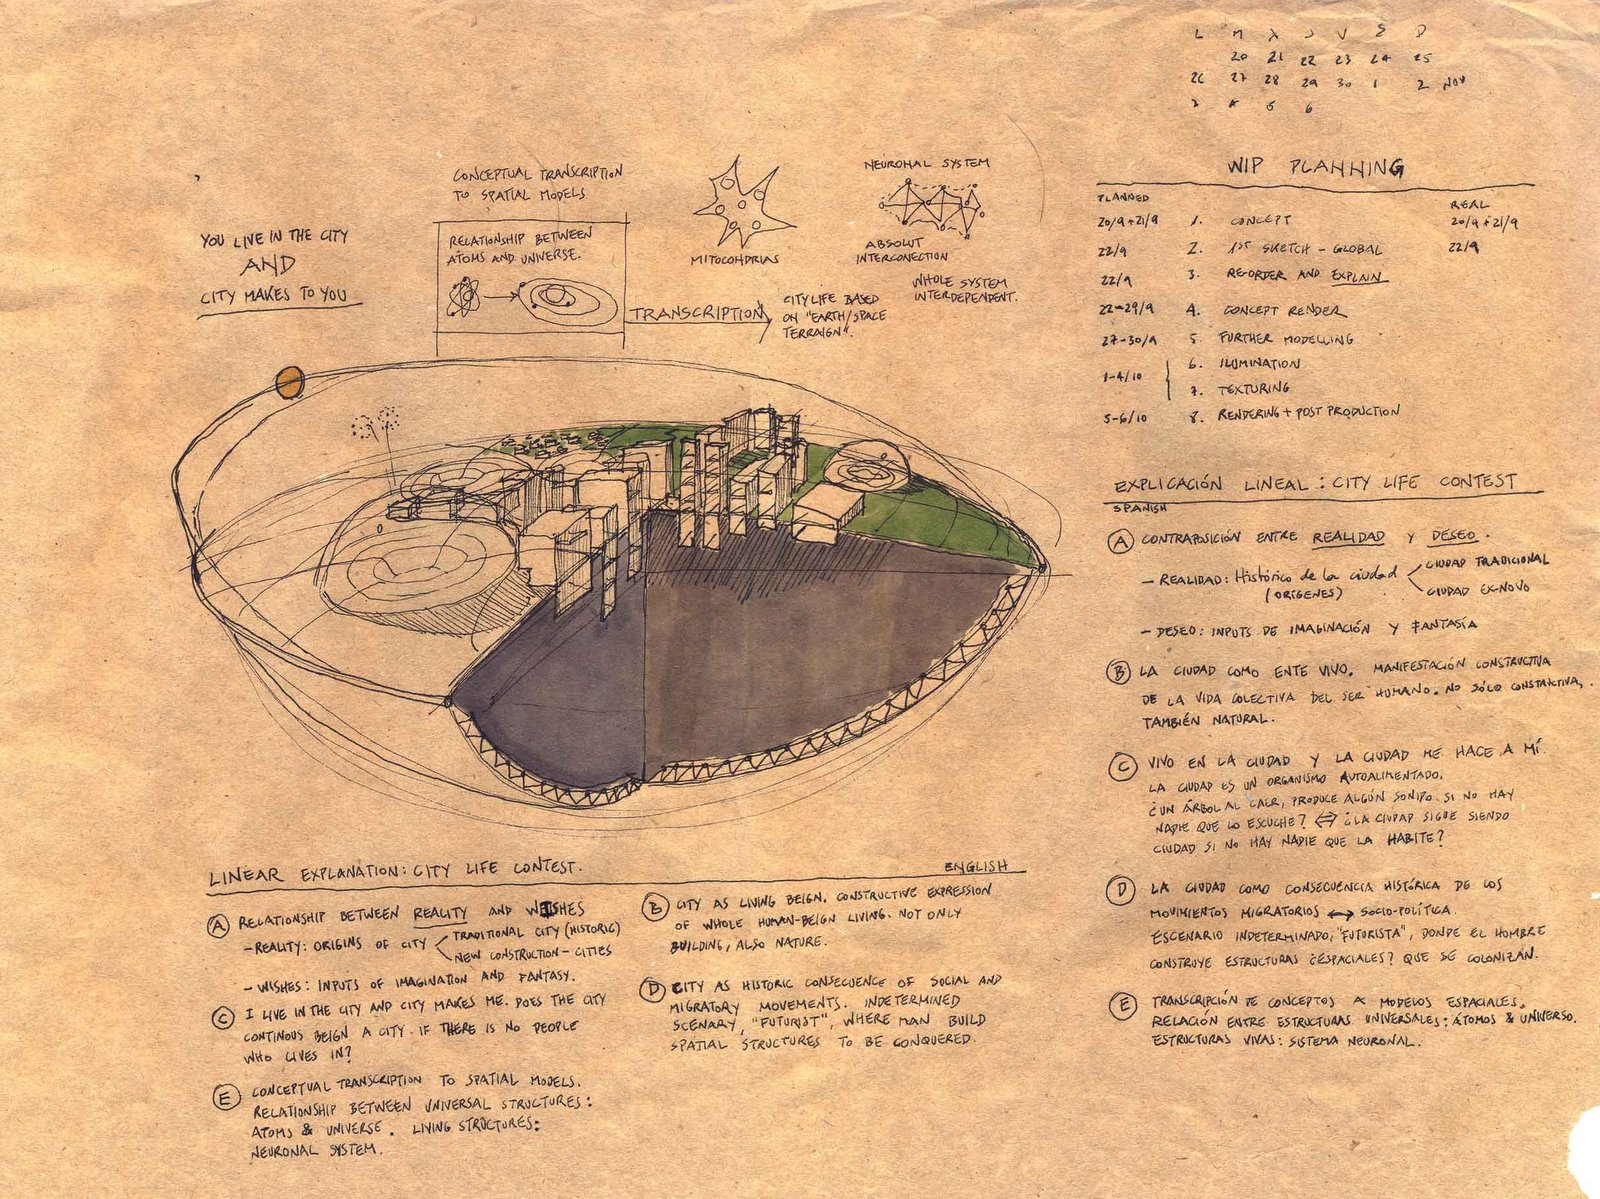 L M X J V S D
20 21 22 23 24 25
26 27 28 29 30 1 2 NOV
3 4 5 6
YOU LIVE IN THE CITY
AND
CITY MAKES TO YOU
CONCEPTUAL TRANSCRIPTION
TO SPATIAL MODELS
RELATIONSHIP BETWEEN
ATOMS AND UNIVERSE.
TRANSCRIPTION
MITOCONDRIAS
CITY LIFE BASED
ON "EARTH/SPACE
TERRAIGN".
NEURONAL SYSTEM
ABSOLUT
INTERCONECTION
WHOLE SYSTEM
INTERDEPENDENT.
WIP PLANNING
PLANNED REAL
20/9+21/9 1. CONCEPT 20/9+21/9
22/9 2. 1ST SKETCH - GLOBAL 22/9
22/9 3. REORDER AND EXPLAIN
22-29/9 4. CONCEPT RENDER
27-30/9 5. FURTHER MODELLING
1-4/10 6. ILUMINATION
7. TEXTURING
5-6/10 8. RENDERING + POST PRODUCTION
EXPLICACIÓN LINEAL: CITY LIFE CONTEST
SPANISH
A CONTRAPOSICIÓN ENTRE REALIDAD Y DESEO.
- REALIDAD: Histórico de la ciudad CIUDAD TRADICIONAL
(ORÍGENES) CIUDAD EXNOVO
- DESEO: INPUTS DE IMAGINACIÓN Y FANTASÍA
B LA CIUDAD COMO ENTE VIVO. MANIFESTACIÓN CONSTRUCTIVA
DE LA VIDA COLECTIVA DEL SER HUMANO. NO SÓLO CONSTRUCTIVA,
TAMBIÉN NATURAL.
C VIVO EN LA CIUDAD Y LA CIUDAD ME HACE A MÍ
LA CIUDAD ES UN ORGANISMO AUTOALIMENTADO.
¿UN ÁRBOL AL CAER, PRODUCE ALGÚN SONIDO SI NO HAY
NADIE QUE LO ESCUCHE? ⇔ ¿LA CIUDAD SIGUE SIENDO
CIUDAD SI NO HAY NADIE QUE LA HABITE?
D LA CIUDAD COMO CONSECUENCIA HISTÓRICA DE LOS
MOVIMIENTOS MIGRATORIOS ↔ SOCIO-POLÍTICA.
ESCENARIO INDETERMINADO, "FUTURISTA", DONDE EL HOMBRE
CONSTRUYE ESTRUCTURAS ¿ESPACIALES? QUE SE COLONIZAN.
E TRANSCRIPCIÓN DE CONCEPTOS A MODELOS ESPACIALES.
RELACIÓN ENTRE ESTRUCTURAS UNIVERSALES: ÁTOMOS & UNIVERSO.
ESTRUCTURAS VIVAS: SISTEMA NEURONAL.
LINEAR EXPLANATION: CITY LIFE CONTEST. ENGLISH
A RELATIONSHIP BETWEEN REALITY AND WISHES
- REALITY: ORIGINS OF CITY TRADITIONAL CITY (HISTORIC)
NEW CONSTRUCTION - CITIES
- WISHES: INPUTS OF IMAGINATION AND FANTASY.
C I LIVE IN THE CITY AND CITY MAKES ME. DOES THE CITY
CONTINOUS BEIGN A CITY IF THERE IS NO PEOPLE
WHO LIVES IN?
E CONCEPTUAL TRANSCRIPTION TO SPATIAL MODELS.
RELATIONSHIP BETWEEN UNIVERSAL STRUCTURES:
ATOMS & UNIVERSE. LIVING STRUCTURES:
NEURONAL SYSTEM.
B CITY AS LIVING BEIGN. CONSTRUCTIVE EXPRESSION
OF WHOLE HUMAN-BEIGN LIVING. NOT ONLY
BUILDING, ALSO NATURE.
D CITY AS HISTORIC CONSECUENCE OF SOCIAL AND
MIGRATORY MOVEMENTS. INDETERMINED
SCENARY, "FUTURIST", WHERE MAN BUILD
SPATIAL STRUCTURES TO BE CONQUERED.